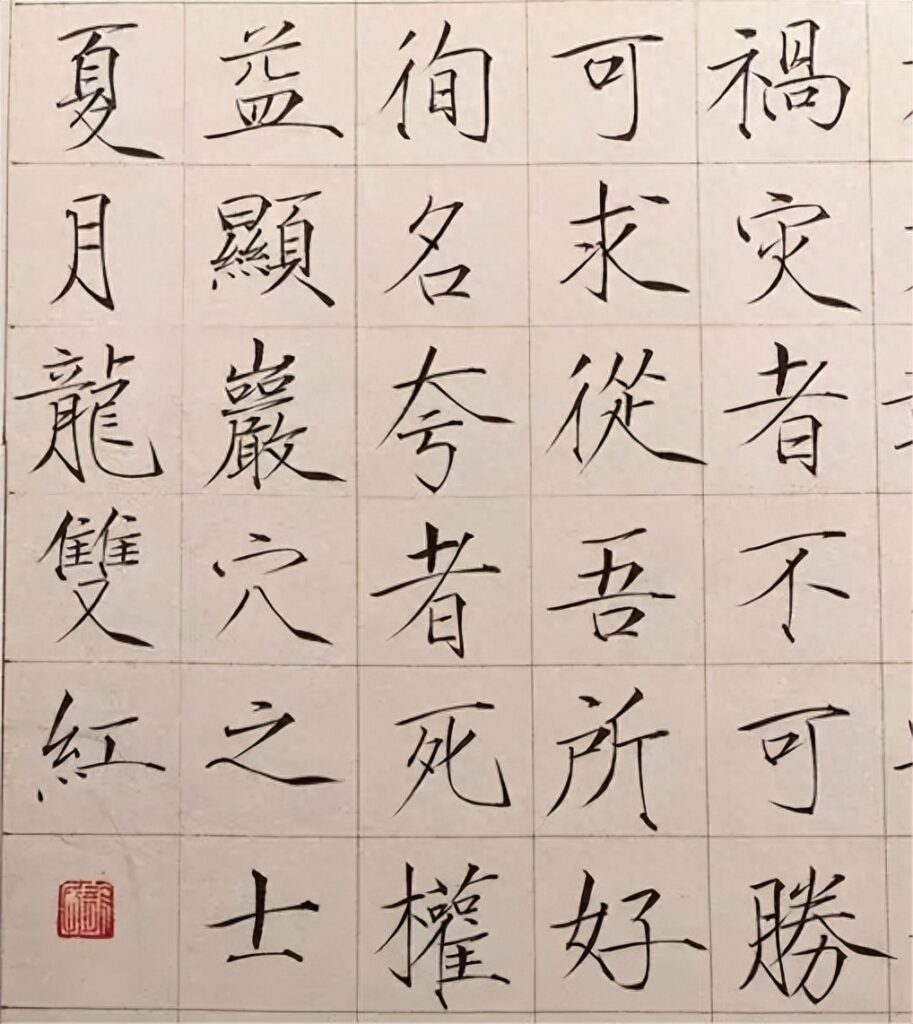 禍灾者不可勝
可求從吾所好
徇名夸者死權
益顯巖穴之士
夏月龍雙紅